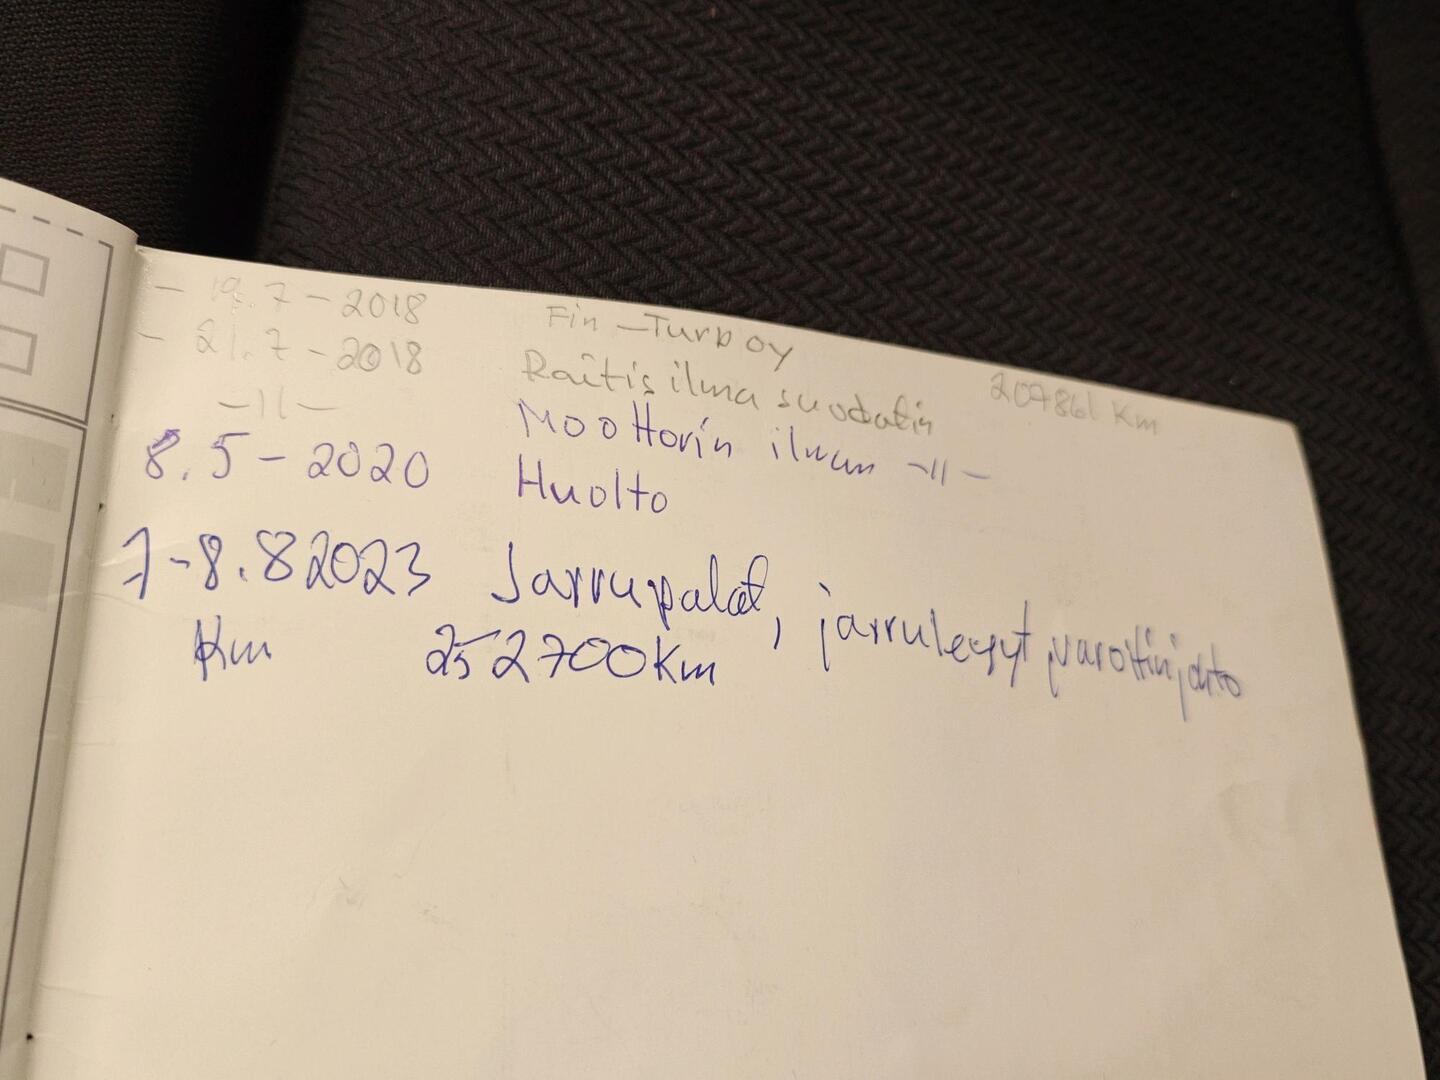 - 19.7-2018 Fin-Turbo oy
- 21.7-2018 Raitis ilma suodatin 207861 Km
-11- Moottorin ilman -11-
8.5-2020 Huolto
7-8.82023 Jarrupalat, jarrulevyt, varoitinjohto
Km 252700Km